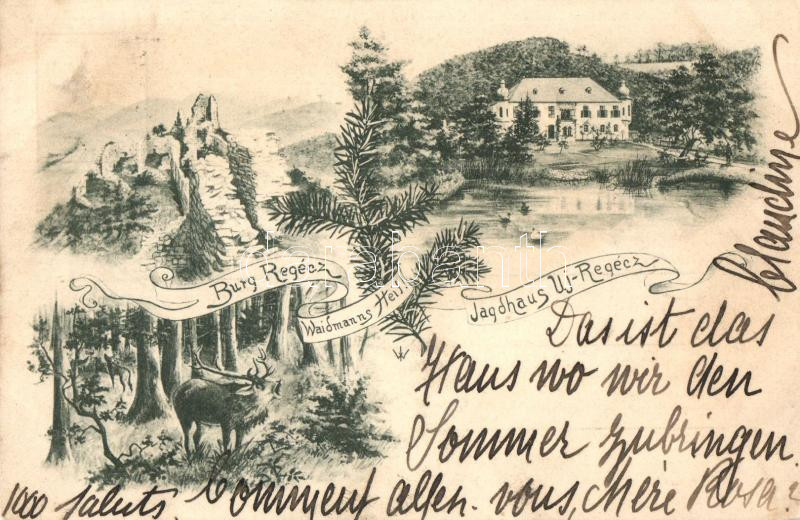 Burg Regécz
Waidmanns Heil!
Jagdhaus Uj-Regécz
Das ist das
Haus wo wir den
Sommer zubringen
1000 saluts. Comment allen. vous, chère Rosa?